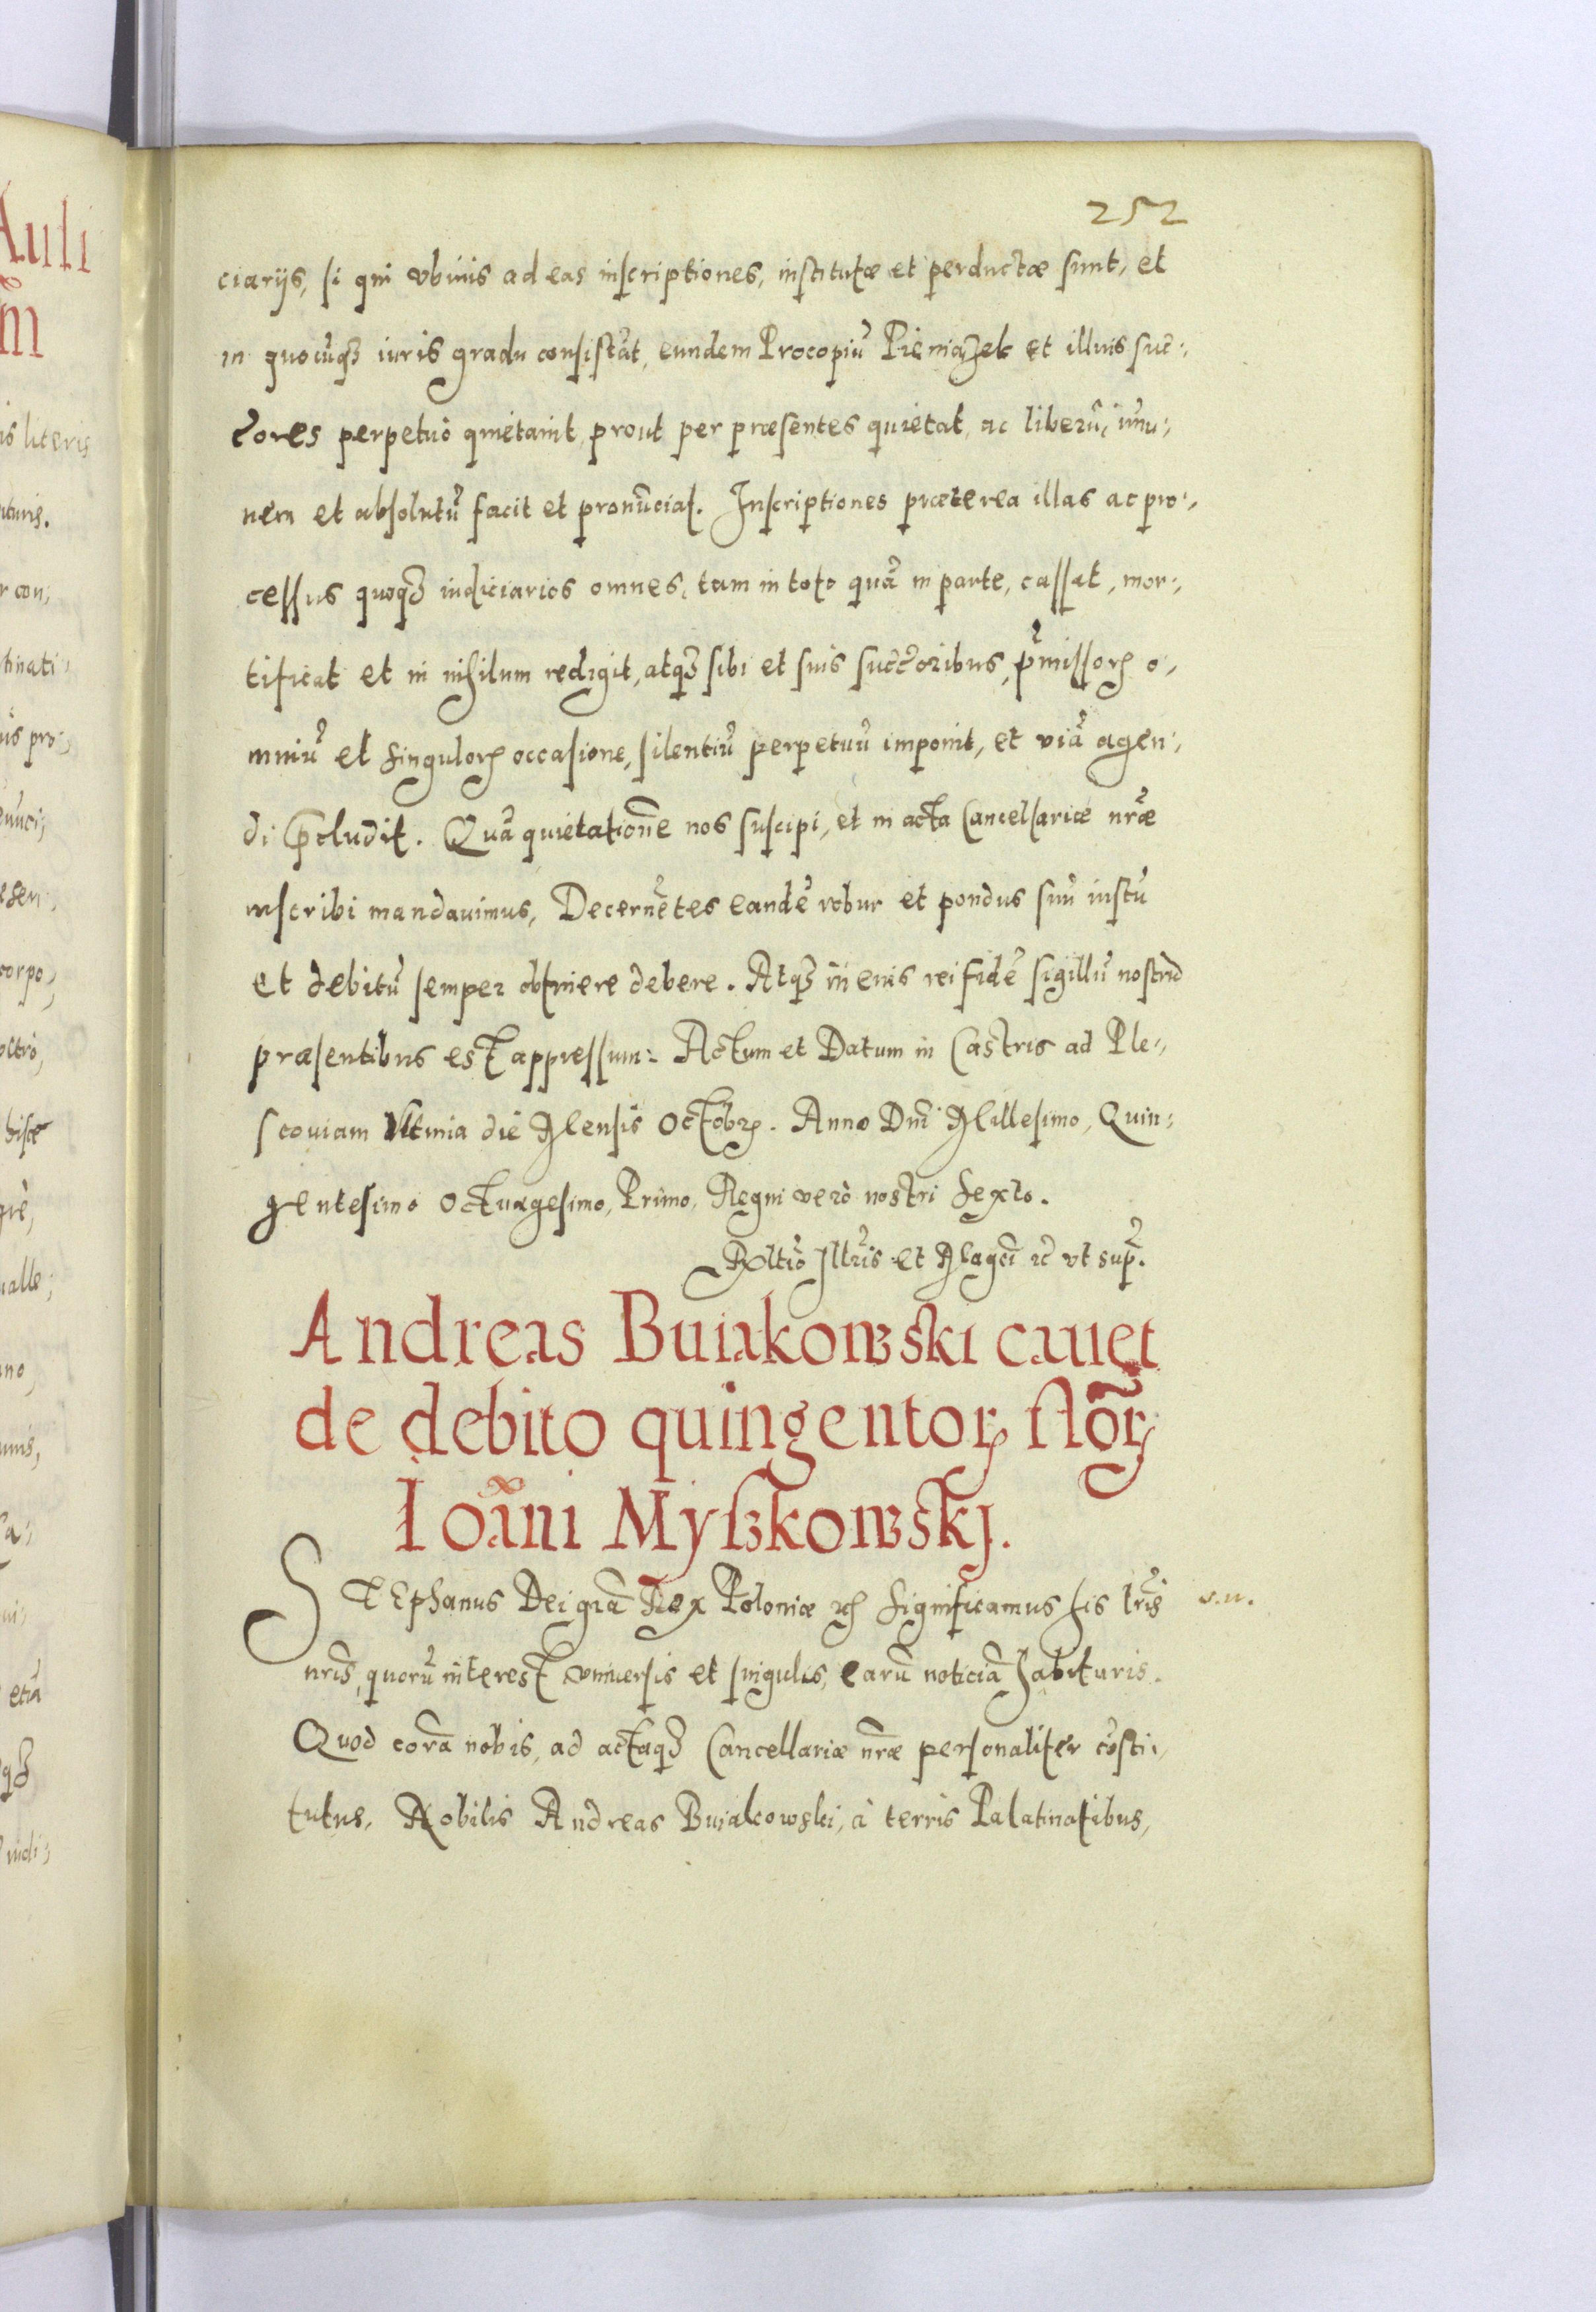 252
ciarijs, si qui vbiuis ad eas inscriptiones, institutæ et perductæ sunt, et
in quocūq3 iuris gradu consistāt, eundem Procopiū Pieniążek et illius suc:,
c̃ores perpetuò quietauit, prout per præsentes quietat, ac liberū, im̄u:,
nem et absolutū facit et pronūciat. Inscriptiones præterea illas ac pro:,
cessus quoq3 iudiciarios omnes, tam in toto quā in parte, cassat, mor:,
tificat et in nihilum redigit, atq3 sibi et suis succ̃oribus, p̃missorꝝ o:,
mniū et singulorꝝ occasione, silentiū perpetuū imponit, et viā agen:,
di p̃cludit. Quā quietationē nos suscipi, et in acta Cancellariæ nr̃æ
inscribi mandauimus, Decernētes eandē robur et pondus suū iustū
et debitū semper obtinere debere. Atq3 in eius rei fidē sigillū nostrū
præsentibus est appressum: Actum et Datum in Castris ad Ple:,
scouiam Vltima die Mensis Octobrꝭ. Anno Dn̄i Millesimo, Quin:,
gentesimo Octuagesimo, Primo, Regni verò nostri Sexto.
Rx̃ltio Illr̃is et Mag̃ci ꝛc̃ vt sup̃.
Andreas Buiakowski cauet
de debito quingentorꝝ flõrꝝ
Ioãni Myszkowskj.
STEphanus Dei gr̃a Rex Poloniæ ꝛc̃ Significamus his lr̃is
s. n.
nr̃is, quorū interest, vniuersis et singulis, earū noticiā habituris.
Quod corā nobis, ad actaq3 Cancellariæ nr̃æ personaliter cōsti:,
tutus, Nobilis Andreas Buiakowski, à terris Palatinatibus,